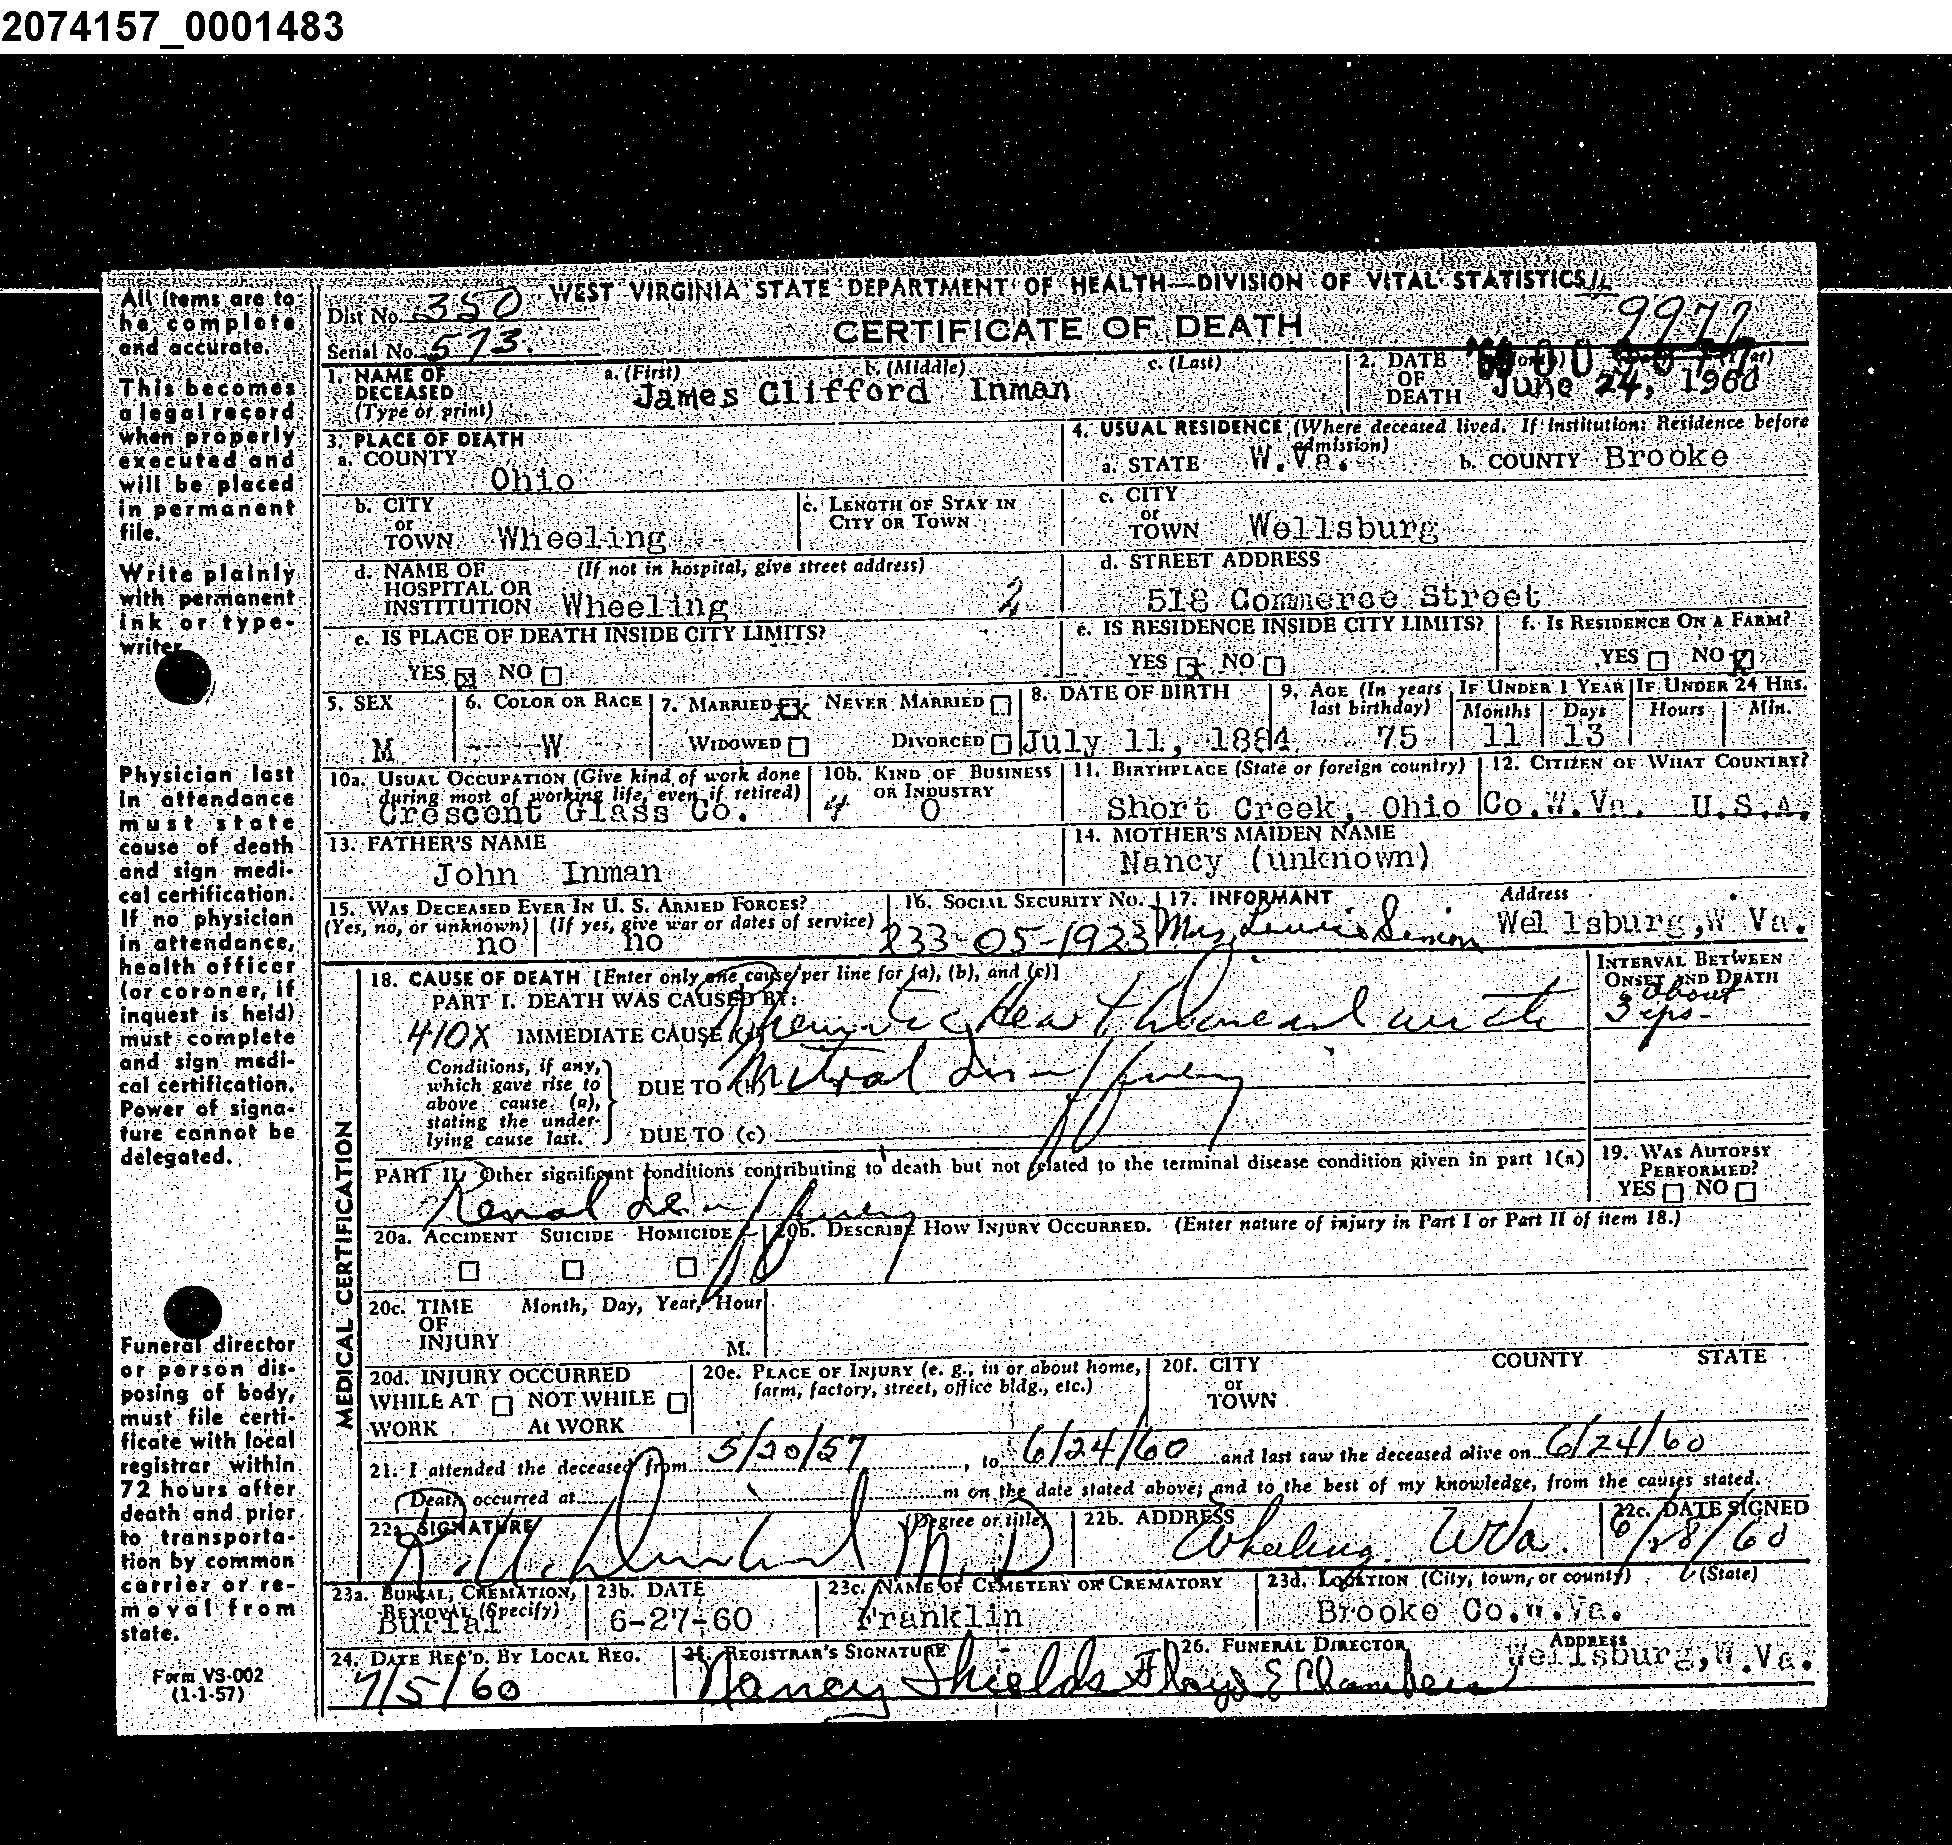 2074157_0001483
All items are to be complete and accurate.
This becomes a legal record when properly executed and will be placed in permanent file.
Write plainly with permanent ink or type-writer.
Physician last in attendance must state cause of death and sign medi-cal certification. If no physician in attendance, health officer (or coroner, if inquest is held) must complete and sign medi-cal certification. Power of signa-ture cannot be delegated.
Funeral director or person dis-posing of body, must file certi-ficate with local registrar within 72 hours after death and prior to transporta-tion by common carrier or re-moval from state.
Form VS-002
(1-1-57)
WEST VIRGINIA STATE DEPARTMENT OF HEALTH—DIVISION OF VITAL STATISTICS
Dist No. 350
Serial No. 573
CERTIFICATE OF DEATH
9977
1. NAME OF DECEASED (Type or print) a. (First) b. (Middle) c. (Last)
James Clifford Inman
2. DATE OF DEATH
June 24, 1960
3. PLACE OF DEATH
a. COUNTY Ohio
b. CITY or TOWN Wheeling
c. LENGTH OF STAY IN CITY OR TOWN
d. NAME OF HOSPITAL OR INSTITUTION (If not in hospital, give street address)
Wheeling 2
e. IS PLACE OF DEATH INSIDE CITY LIMITS?
YES NO
4. USUAL RESIDENCE (Where deceased lived. If Institution: Residence before admission)
a. STATE W.Va. b. COUNTY Brooke
c. CITY or TOWN Wellsburg
d. STREET ADDRESS
518 Commerce Street
e. IS RESIDENCE INSIDE CITY LIMITS?
YES NO
f. IS RESIDENCE ON A FARM?
YES NO
5. SEX M
6. COLOR OR RACE W
7. MARRIED NEVER MARRIED
WIDOWED DIVORCED
8. DATE OF BIRTH July 11, 1884
9. AGE (In years last birthday) 75
IF UNDER 1 YEAR Months 11 Days 13
IF UNDER 24 HRS. Hours Min.
10a. USUAL OCCUPATION (Give kind of work done during most of working life, even if retired)
Crescent Glass Co.
10b. KIND OF BUSINESS OR INDUSTRY
4 0
11. BIRTHPLACE (State or foreign country)
Short Creek, Ohio Co.W.Va.
12. CITIZEN OF WHAT COUNTRY?
U.S.A.
13. FATHER'S NAME
John Inman
14. MOTHER'S MAIDEN NAME
Nancy (unknown)
15. WAS DECEASED EVER IN U. S. ARMED FORCES?
(Yes, no, or unknown) (If yes, give war or dates of service)
no no
16. SOCIAL SECURITY NO.
233-05-1923
17. INFORMANT Address
Simon Wellsburg, W Va.
18. CAUSE OF DEATH [Enter only one cause per line for (a), (b), and (c)]
PART I. DEATH WAS CAUSED BY:
410X IMMEDIATE CAUSE (a) Rheumatic Heart
Conditions, if any, which gave rise to above cause (a), stating the under-lying cause last.
DUE TO (b) Mitral Insufficiency
DUE TO (c)
INTERVAL BETWEEN ONSET AND DEATH
about
3 yrs-
PART II. Other significant conditions contributing to death but not related to the terminal disease condition given in part 1(a)
Renal Insufficiency
19. WAS AUTOPSY PERFORMED?
YES NO
20a. ACCIDENT SUICIDE HOMICIDE
20b. DESCRIBE HOW INJURY OCCURRED. (Enter nature of injury in Part I or Part II of item 18.)
20c. TIME OF INJURY Month, Day, Year, Hour
M.
20d. INJURY OCCURRED
WHILE AT WORK NOT WHILE At WORK
20e. PLACE OF INJURY (e. g., in or about home, farm, factory, street, office bldg., etc.)
20f. CITY or TOWN COUNTY STATE
MEDICAL CERTIFICATION
21. I attended the deceased from 5/20/57, to 6/24/60 and last saw the deceased alive on 6/24/60
Death occurred at m on the date stated above; and to the best of my knowledge, from the causes stated.
22a. SIGNATURE (Degree or title)
M.D
22b. ADDRESS
Wheeling WVa.
22c. DATE SIGNED
6/28/60
23a. BURIAL, CREMATION, REMOVAL (Specify)
Burial
23b. DATE
6-27-60
23c. NAME OF CEMETERY OR CREMATORY
Franklin
23d. LOCATION (City, town, or county) (State)
Brooke Co.W.Va.
24. DATE REC'D. BY LOCAL REG.
7/5/60
25. REGISTRAR'S SIGNATURE
Nancy Shields
26. FUNERAL DIRECTOR ADDRESS
Floyd E Chambers Wellsburg,W.Va.